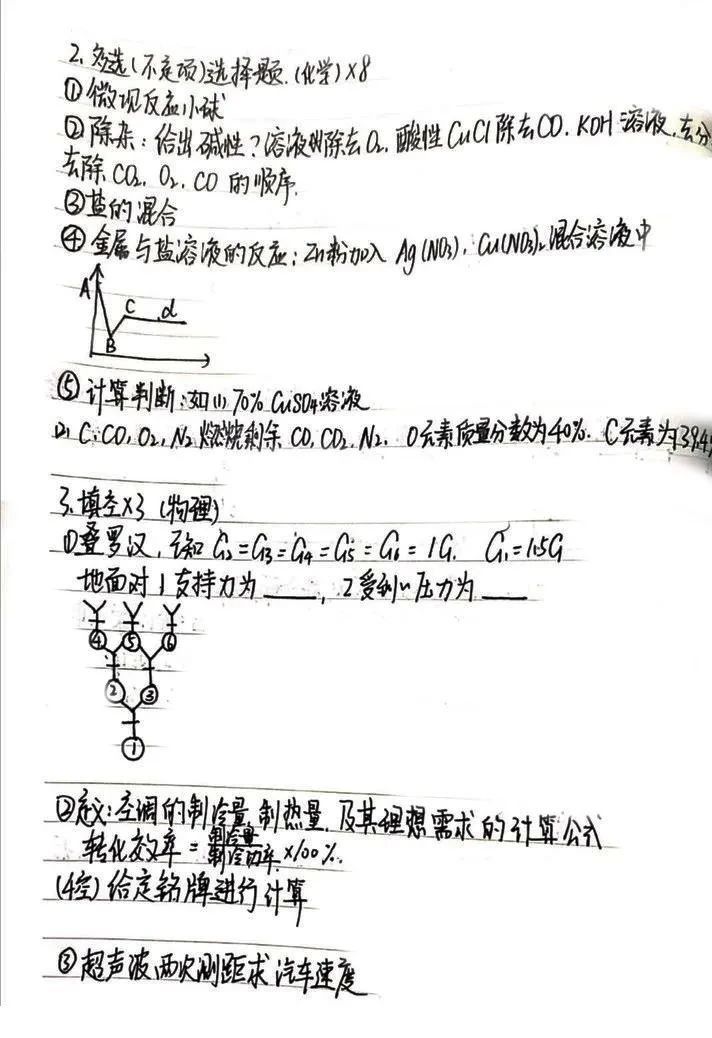 2. 多选(不定项)选择题.(化学)×8
① 微观反应小球
② 除杂：给出碱性？溶液除去O₂, 酸性CuCl除去CO. KOH溶液, 去分
去除CO₂, O₂, CO 的顺序.
③ 盐的混合
④ 金属与盐溶液的反应：Zn粉加入 Ag(NO₃), Cu(NO₃)₂混合溶液中
A
C d
B
⑤ 计算判断：如(1) 70% CuSO₄溶液
(2) C: CO, O₂, N₂ 燃烧剩余 CO, CO₂, N₂. O元素质量分数为40%. C元素为39.4
3. 填空×3 (物理)
① 叠罗汉, 已知 G₂=G₃=G₄=G₅=G₆=1G. G₁=1.5G
地面对1支持力为____, 2受到的压力为____
④ ⑤ ⑥
② ③
①
② 定义：空调的制冷量, 制热量, 及其理想需求的计算公式
转化效率 = 制冷量/制冷功率 ×100%.
(4空) 给定铭牌进行计算
③ 超声波两次测距求汽车速度